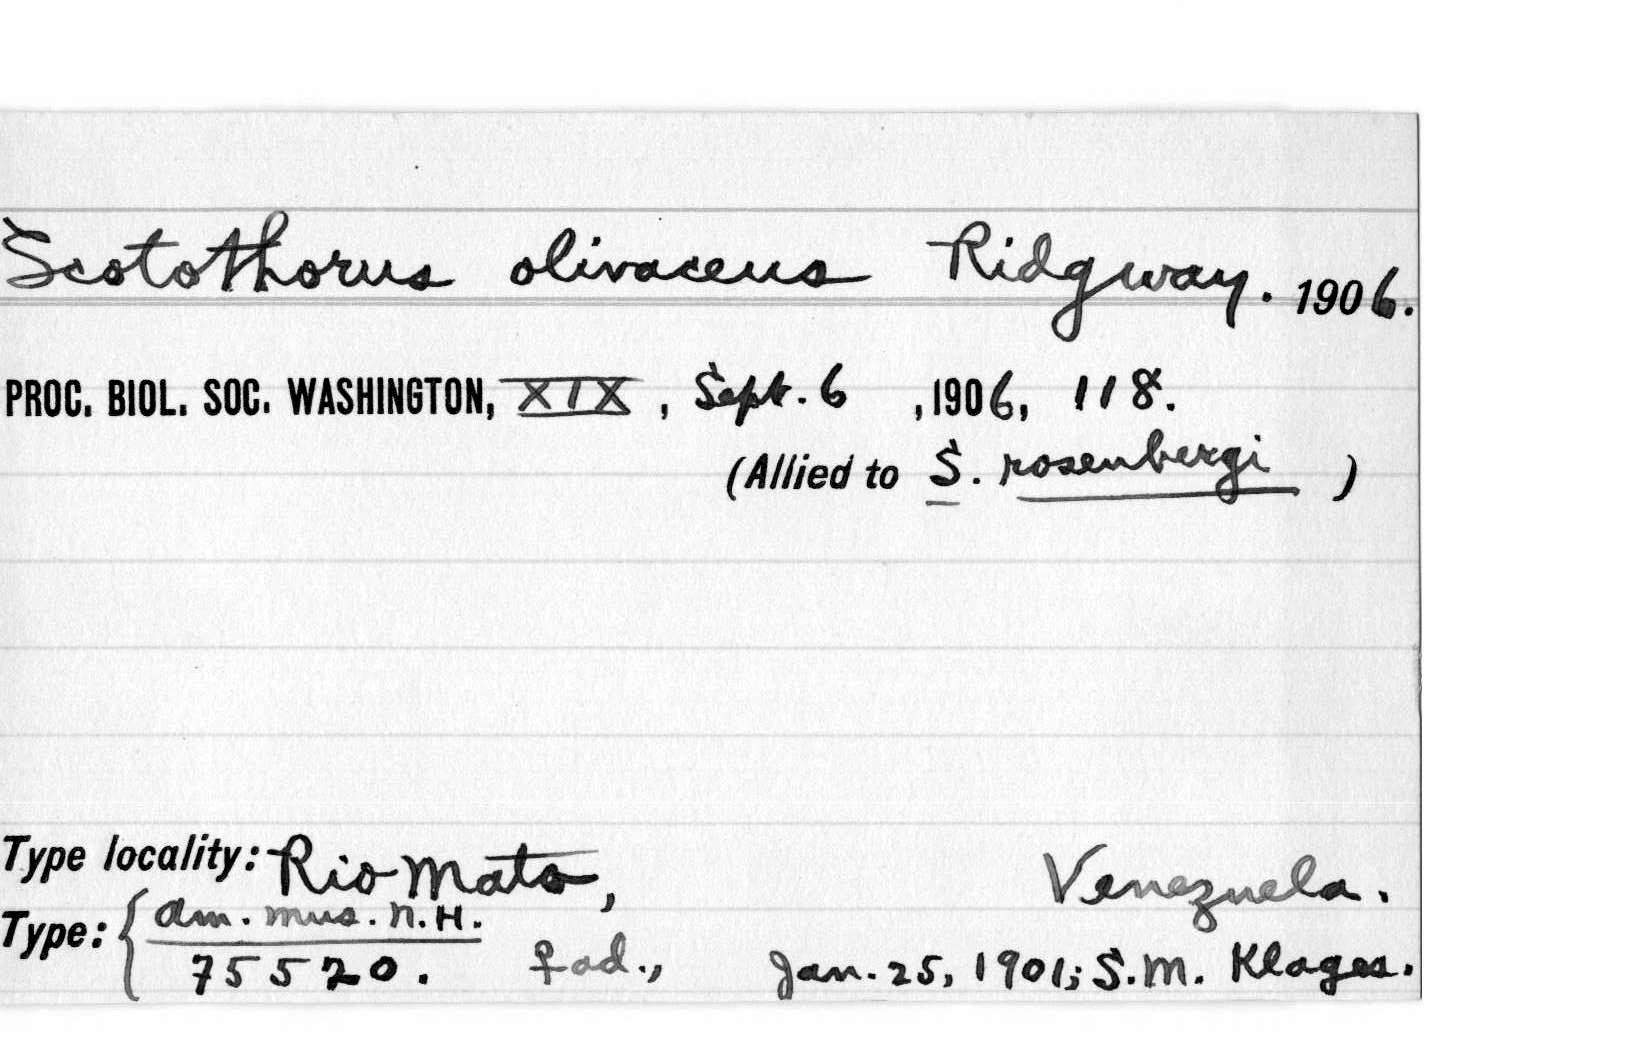 Scotothorus olivaceus Ridgway. 1906.
PROC. BIOL. SOC. WASHINGTON, XIX, Sept. 6, 1906, 118.
(Allied to S. rosenbergi)
Type locality: Rio Mato, Venezuela.
Type: { Am. Mus. N.H.
75520. ♀ ad., Jan. 25, 1901; S.M. Klages.